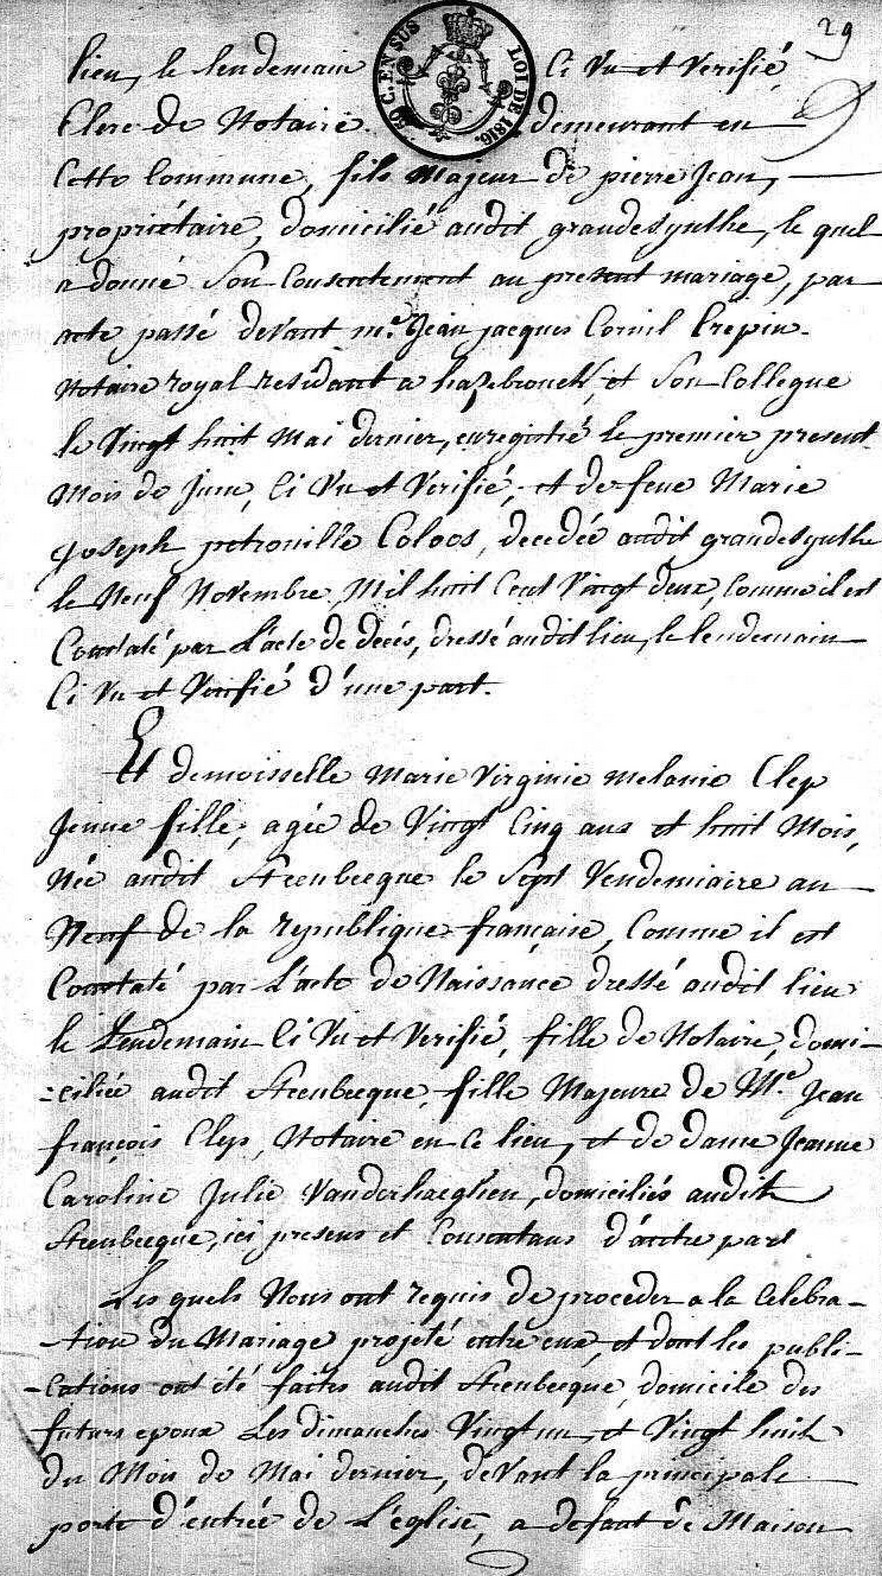 29
lieu, le lendemain Ci Vu et Verifié
50 C. EN SUS
LOI DE 1816.
Clerc de Notaire. demeurant en
Cette Commune, fils Majeur de pierre Jean,
propriétaire, domicilié audit grandesynthe, le quel
a donné Son Consentement au present mariage, par
acte passé devant m.e Jean jacques Cornil Crepin
Notaire royal residant a hazebrouck, et Son Collegue
le Vingt huit Mai dernier, enregistré le premier present
Mois de Juin, Ci Vu et Verifié, et de feue Marie
Joseph petronille Coloos, decedée audit grandesynthe
le Neuf Novembre Mil huit Cent Vingt deux, Comme il est
Constaté par L'acte de decés, dressé audit lieu, le lendemain
Ci Vu et Verifié d'une part.
Et demoisselle Marie Virginie Melanie Clep
Jeune fille, agée de Vingt Cinq ans et huit Mois,
Née audit Steenbecque le Sept Vendemiaire an
Neuf de la republique française, Comme il est
Constaté par L'acte de Naissance dressé audit lieu
le Lendemain Ci Vu et Verifié, fille de Notaire, domi-
:ciliée audit Steenbecque, fille Majeure de M.e Jean
françois Clep, Notaire en Ce lieu, et de dame Jeanne
Caroline Julie Vanderhaeghen, domiciliés audit
Steenbecque, ici presens et Consentans d'autre part
Les quels Nous ont requis de proceder a la Celebra-
-tion du Mariage projeté entre eux, et dont les publi-
-cations ont été faites audit Steenbecque, domicile des
futurs epoux Les dimanches Vingt un, et Vingt huit
du Mois de Mai dernier, devant la principale
porte d'entrée de L'église, a defaut de Maison